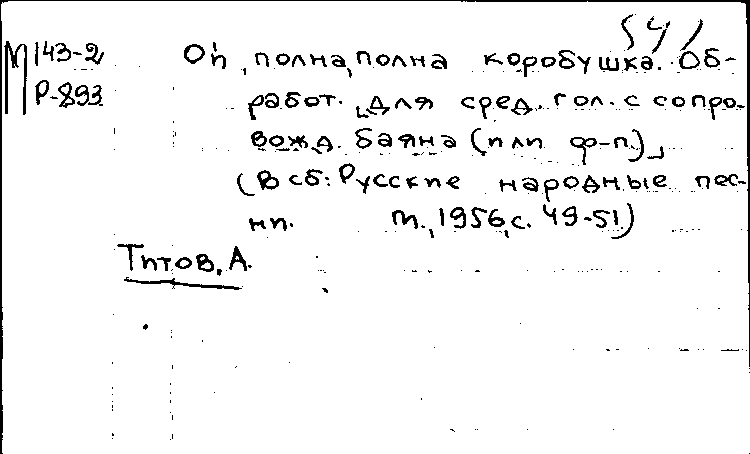 541
М 143-2
Р-893
Ой, полна, полна коробушка. Об-
работ. [для сред. гол. с сопро-
вожд. баяна (или ф-п.)]
(В сб: Русские народные пес-
ни. М., 1956, с. 49-51)
Титов, А.